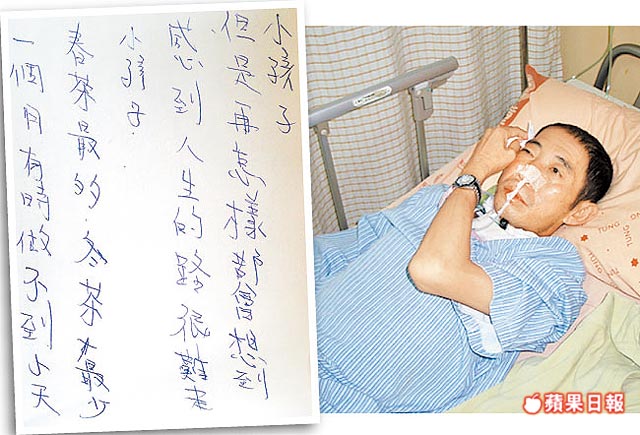 小孩子
但是再怎樣都會想到
感到人生的路很難走
小孩子.
春茶最多.冬茶最少
一個月有時做不到5天
TUNG
TUNG
蘋果日報